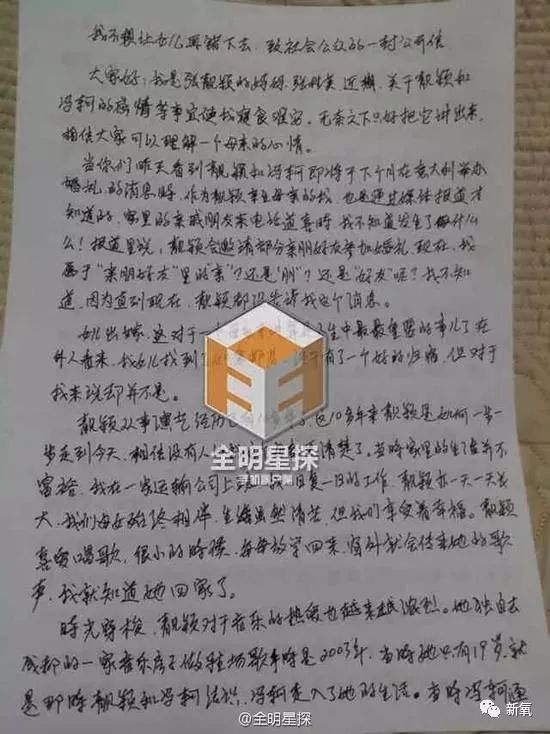 我不想让女儿再错下去,致社会公众的一封公开信
大家好:我是张靓颖的妈妈,张桂英,近期,关于靓颖和
冯柯的婚情等事宜使我寝食难安。无奈之下只好把它讲出来,
相信大家可以理解一个母亲的心情。
当你们昨天看到靓颖和冯柯即将于下个月在意大利举办
婚礼的消息时,作为靓颖亲生母亲的我,也是通过媒体报道才
知道的,家里的亲戚朋友来电话道喜时,我不知道发生了每什么
么!报道里说,靓颖会邀请部分亲朋好友参加婚礼,现在,我
属于"亲朋好友"里的"亲"?还是"朋"?还是"好友"呢?我不知
道,因为直到现在,靓颖都没告诉我这个消息。
女儿出嫁,这对于一 生中最最重要的事儿了在
外人看来,我女儿找到了 有了一个好的归宿,但对于
我来说却并不是。
靓颖从事演艺 这10多年来靓颖是如何一步
步走到今天,相信没有人 清楚了。当时家里的生活并不
富裕,我在一家运输公司上 日复一日的工作,靓颖亦一天一天长
大,我们母女始终相伴,生活虽然清苦,但我们享受着幸福。靓颖
喜爱唱歌,很小的时候,每每放学回来,窗外就会传来她的歌
声,我就知道她回家了。
时光野梭,靓颖对于音乐的热爱也越来越浓烈。她独自去
成都的一家音乐房子做驻场歌手时是2003年,当时她只有19岁,就
是那时靓颖和冯柯结识,冯柯走入了她的生活。当时冯柯通
全明星探
全明星探
@全明星探
新氧